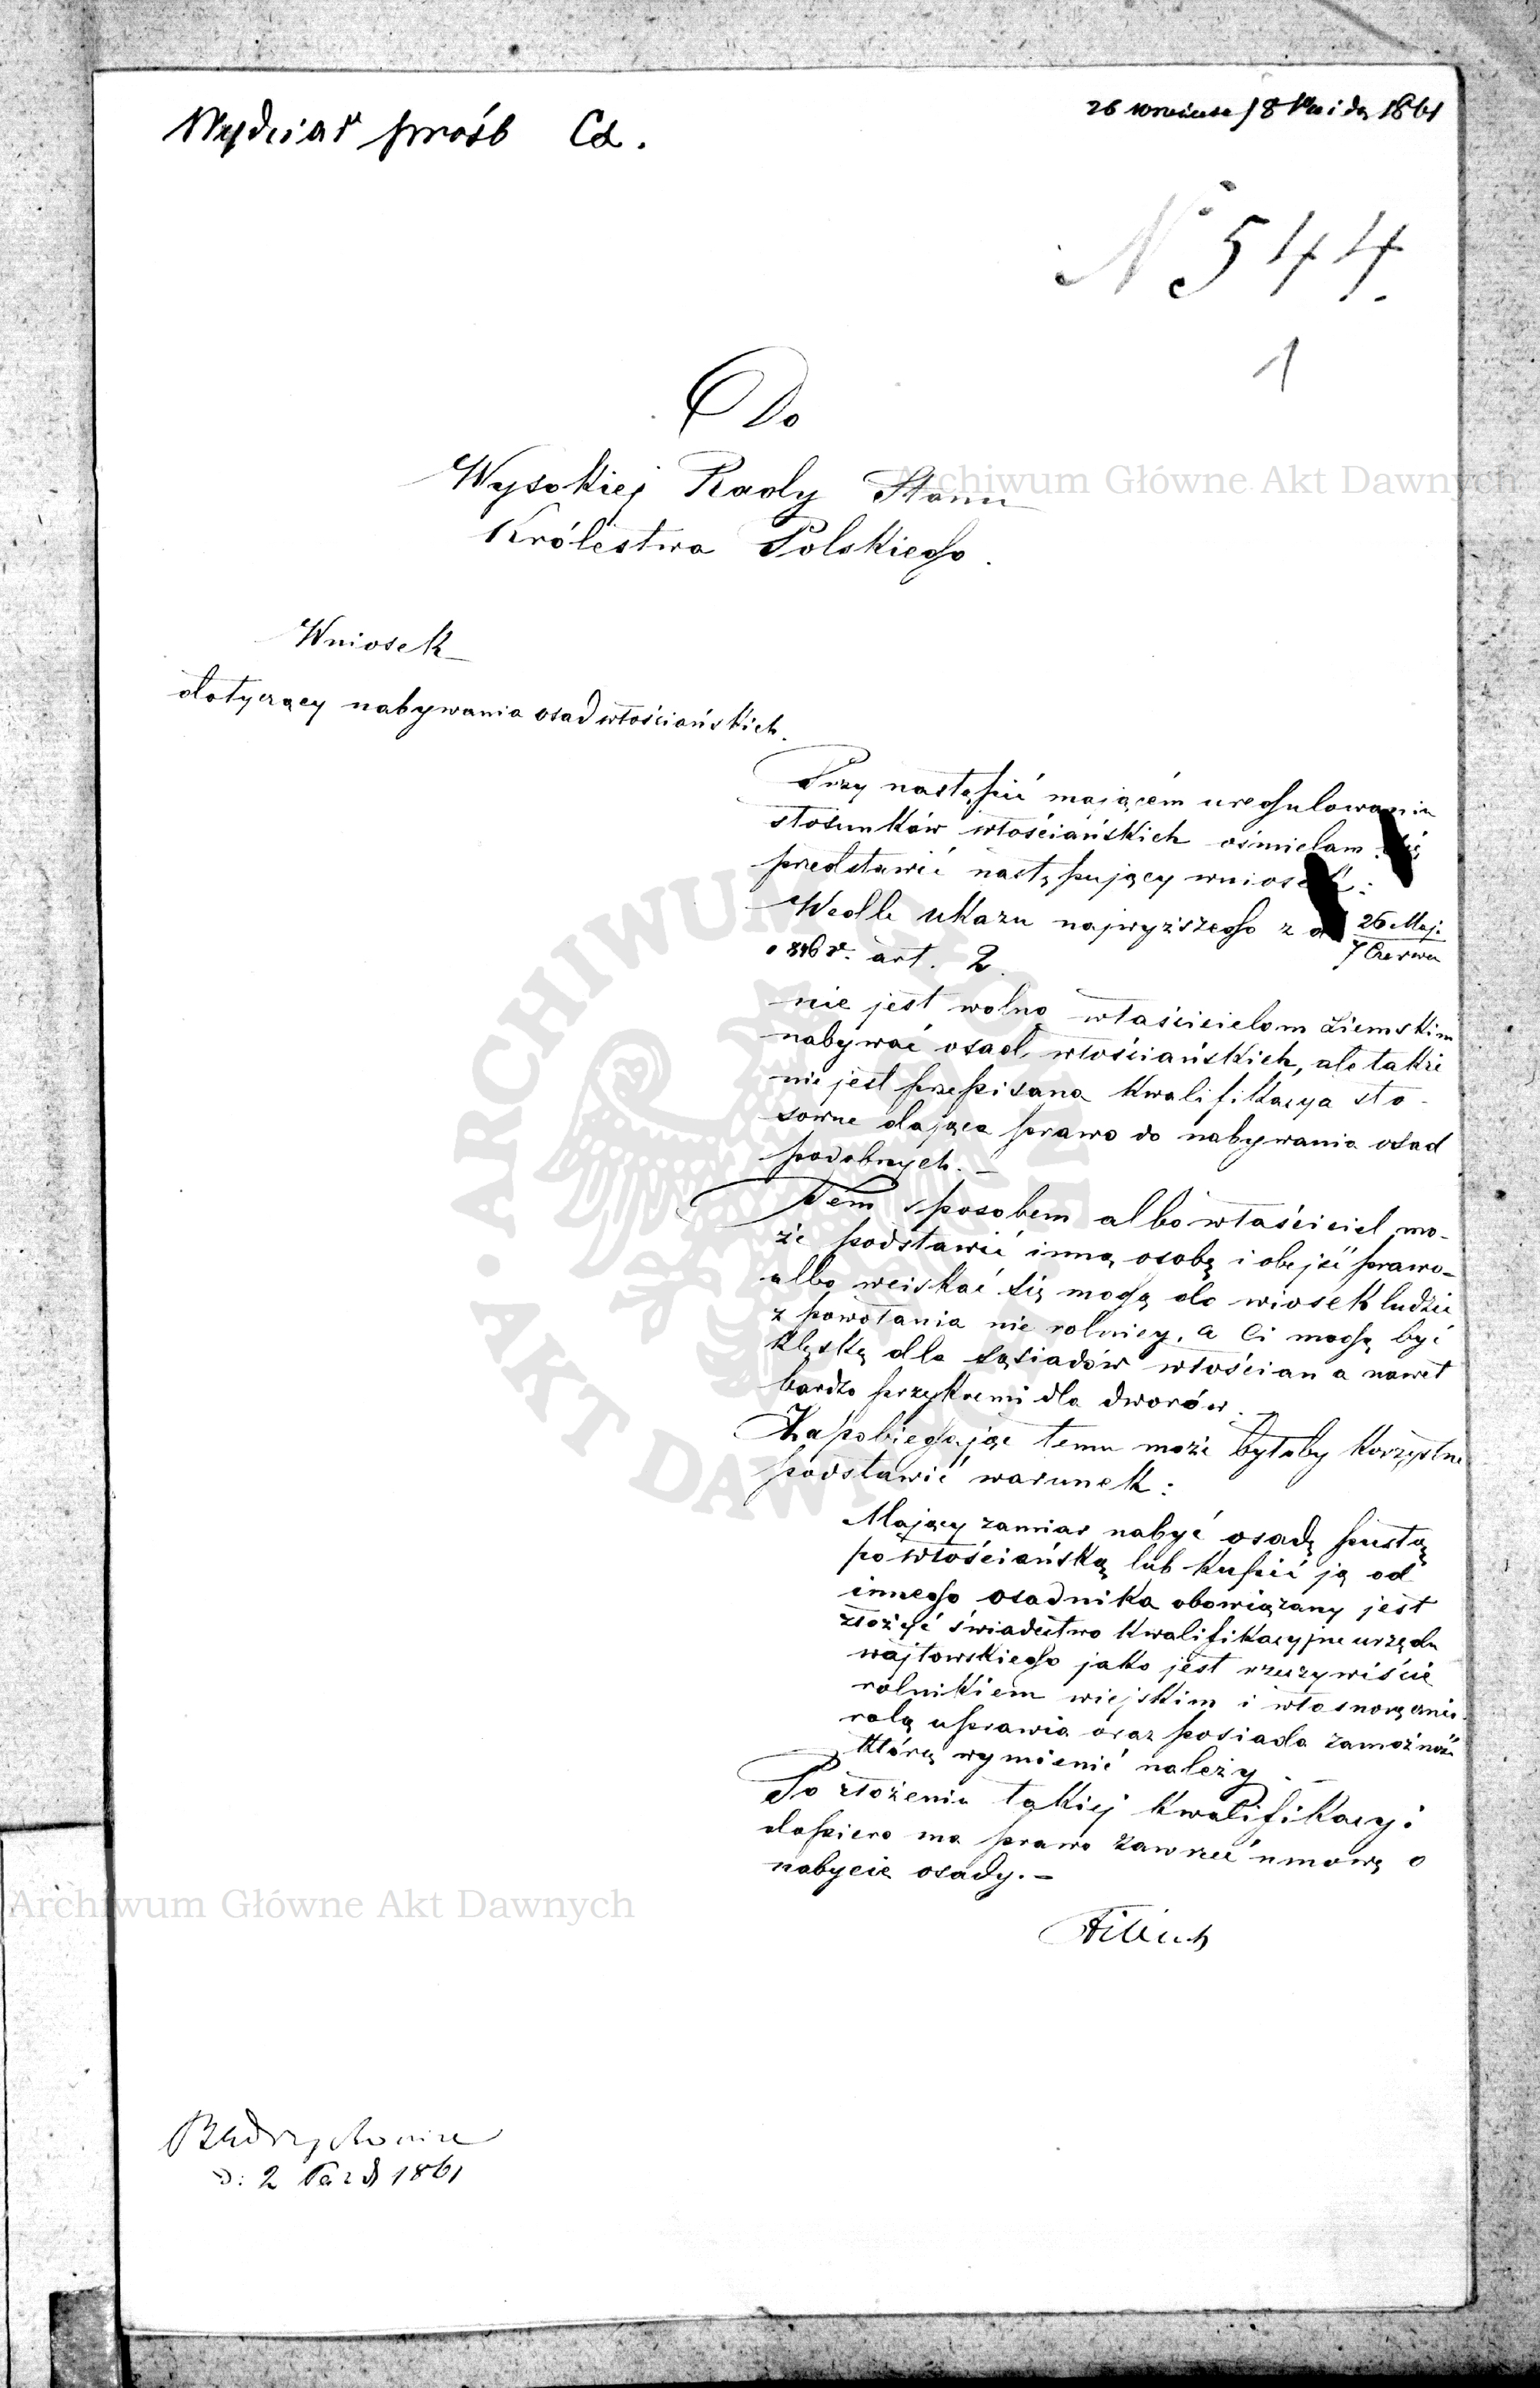 Wydział próśb Cd.
26 września / 8 Paźdz 1861
N 544.
1
Do
Wysokiej Rady Stanu
Królestwa Polskiego.
Wniosek
dotyczący nabywania osad włościańskich.
Przy nastąpić mającém uregulowaniu
stosunków włościańskich ośmielam się
przedstawić następujący wniosek:
Wedle ukazu najwyższego z d 26 Maj.
7 Czerwca
1846 r. art. 2.
nie jest wolno właścicielom ziemskim
nabywać osad włościańskich, ale także
nie jest przepisana kwalifikacya sto-
sowne dająca prawo do nabywania osad
podobnych. –
Tem sposobem albo właściciel mo-
że podstawić inną osobę i obejść prawo –
albo wciskać się mogą do wiosek ludzie
z powołania nie rolnicy, a Ci mogą być
klęską dla sąsiadów włościan a nawet
bardzo przykremi dla dworów. –
Zapobiegając temu może byłoby korzystne
podstawić warunek:
Mający zamiar nabyć osadę pustą
po włościańską lub kupić ją od
innego osadnika obowiązany jest
złożyć świadectwo kwalifikacyjne urzędu
wójtowskiego jako jest rzeczywiście
rolnikiem wiejskim i własnoręcznie
rolę uprawia oraz posiada zamożność
którą wymienić należy. –
Po złożeniu takiej kwalifikacyi
dopiero ma prawo zawrzeć umowę o
nabycie osady. –
d: 2 Paźd 1861
Archiwum Główne Akt Dawnych
Archiwum Główne Akt Dawnych
ARCHIWUM GŁÓWNE
AKT DAWNYCH